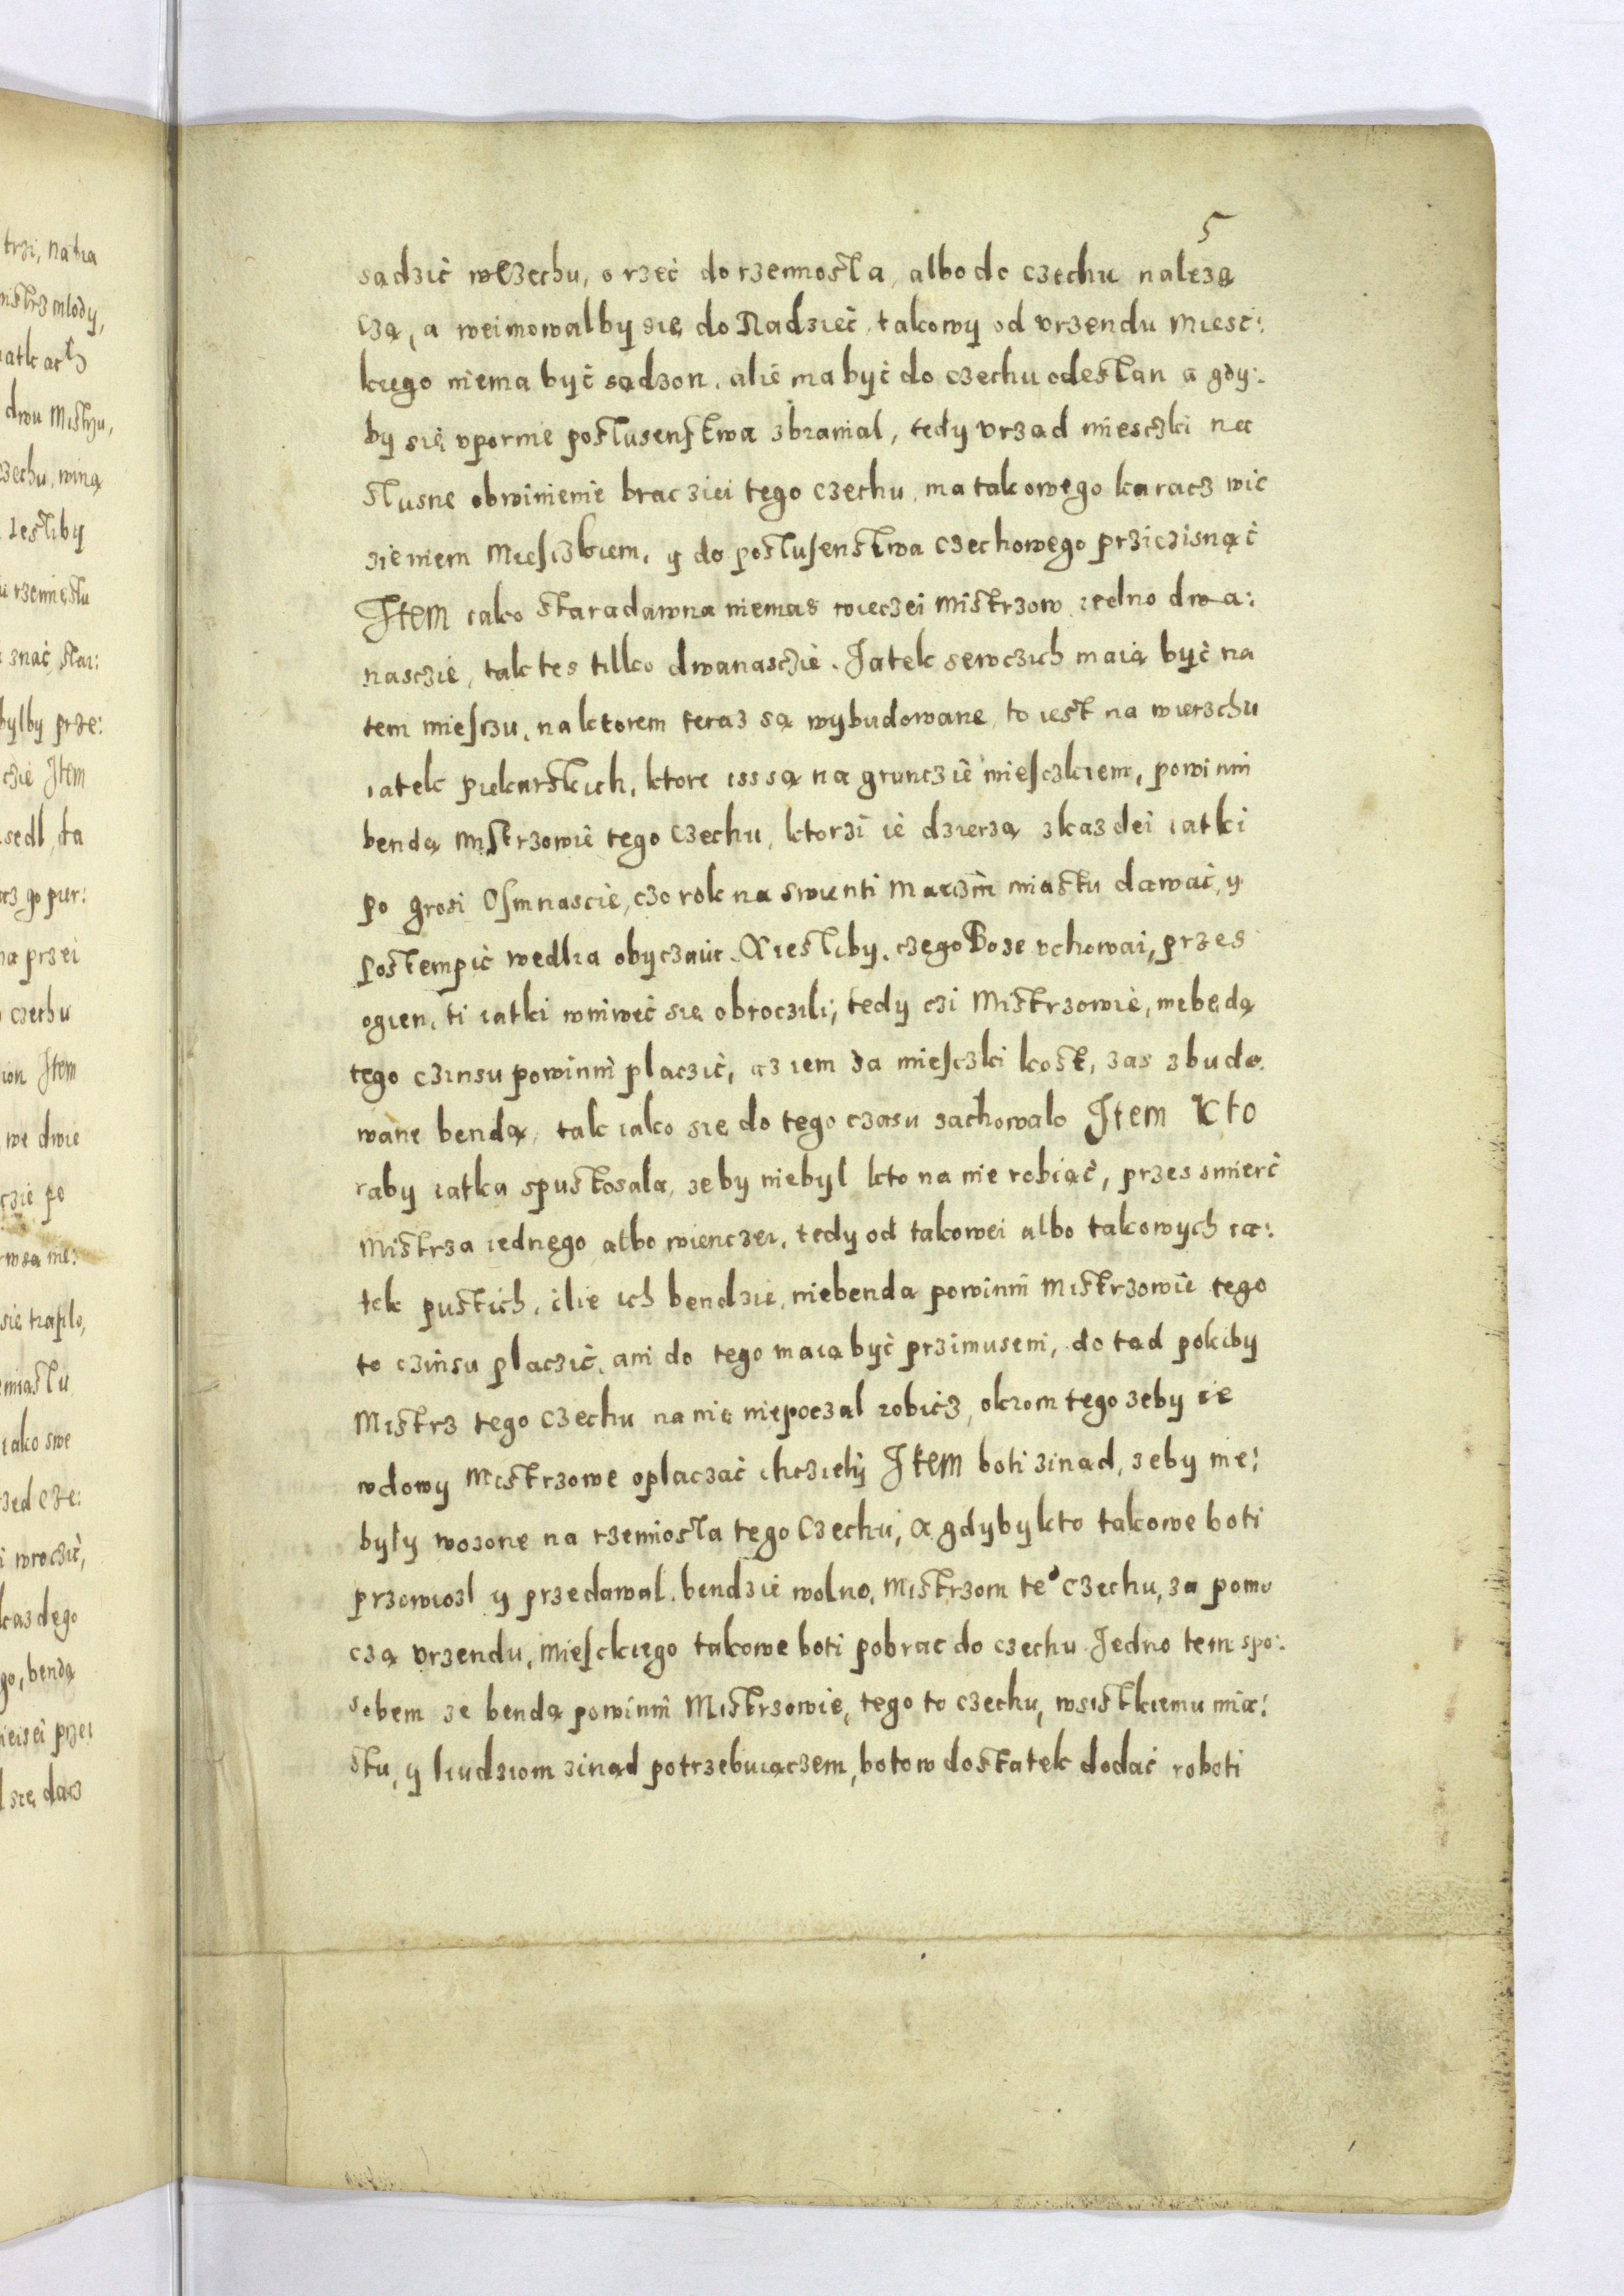 5
sądzić wczechu, o rzeć do rzemiosła, albo do czechu nalezą
czą, a weimowalby się do Radzieć, takowy od vrzendu miesc:
kiego niema być sądzon, alie ma być do czechu odesłan a gdy:
by się vpornie posłusenstwa zbraniał, tedy vrząd miesczki na
słusne obwinienie braczięi tego czechu, ma takowego karacz wię
zieniem Miesczkiem, y do posłusenstwa czechowego prziczisnąć
Item iako staradawna niemas wieczei Mistrzow iedno dwa:
nasczie, tak tes tilko dwanasczie. Jatek sewczich maią być na
tem miesczu, na ktorem teraz są wybudowane, to iest na wierzchu
iatek piekarskich, ktore iss są na grunczie miesczkiem, powinni
bendą Mistrzowie tego czechu, ktorzi ie dzierzą zkazdei iatki
po grosi Osmnascie, czo rok na swienti Marczin miastu dawać, y
postempić wedlia obyczaiu. A iesliby, czego Boze vchowai, przes
ogien, ti iatki wniweć się obroczili, tedy czi Mistrzowie, niebędą
tego czinsu powinni placzić, az iem za miesczki kost, zas zbudo:
wane bendą, tak iako się do tego czasu zachowalo Item Kto
raby iatka spustosala, zeby niebyl kto na nie robiąć, przes smierć
Mistrza iednego albo wienczei, tedy od takowei albo takowych ia:
tek pustich, ilie ich bendzie, niebenda powinni Mistrzowie tego
to czinsu placzić, ani do tego maią być przimuseni, do tad pokiby
Mistrz tego czechu na nię niepoczal robicz, okrom tego zeby ie
wdowy Mistrzowe oplaczać chczieły Item boti zinad, zeby nie:
były wozone na rzemiosła tego Czechu, a gdybykto takowe boti
przewiozl y przedawal, bendzie wolno, Mistrzom te° czechu, za pomo
czą vrzendu, miesckiego takowe boti pobrac do czechu Jedno tem spo:
sobem ze bendą powinni Mistrzowie, tego to czechu, wsistkiemu mia:
stu, y liudziom zinąd potrzebuiączem, botow dostatek dodać roboti